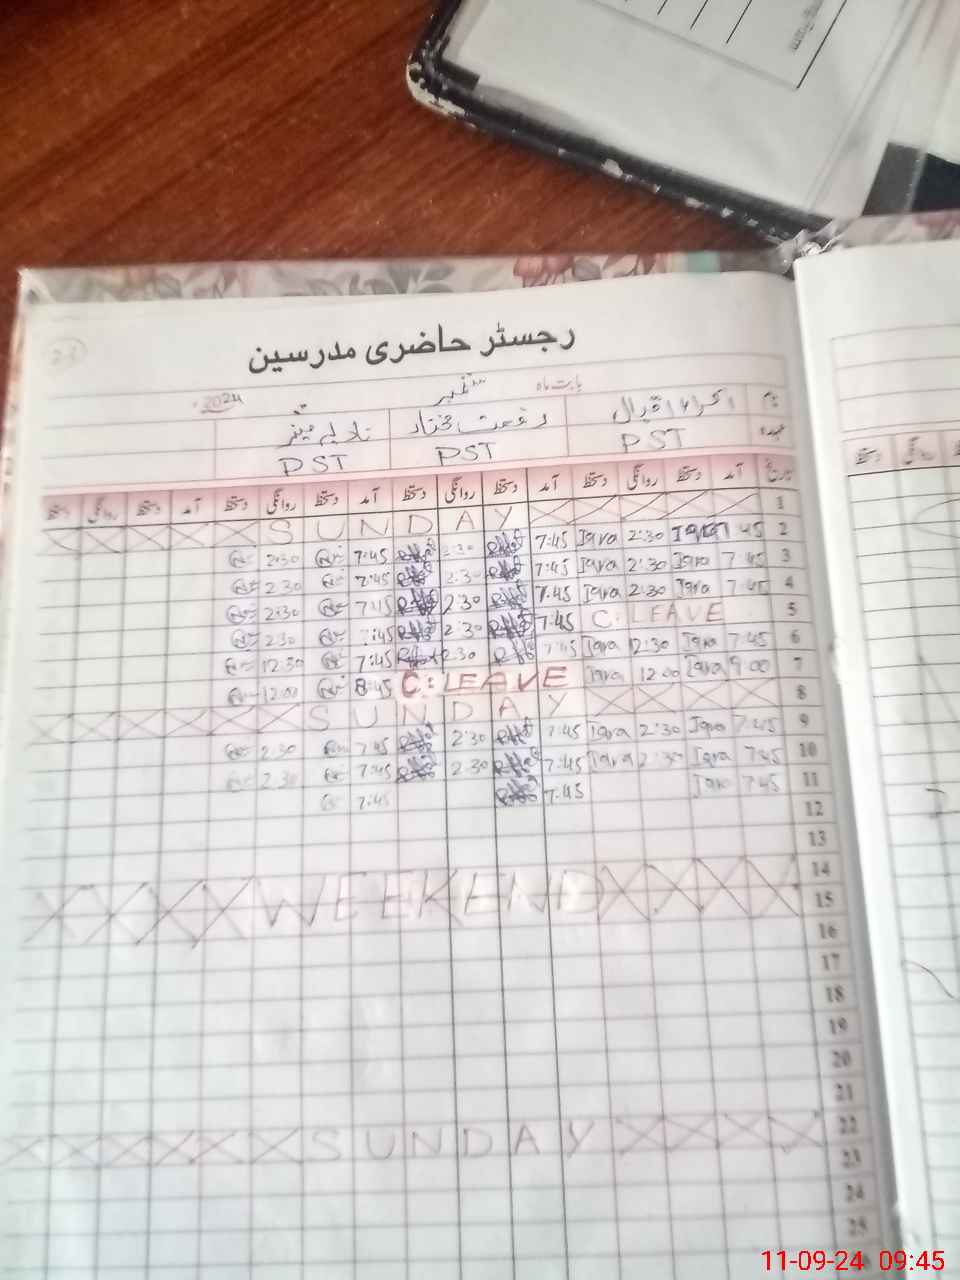 رجسٹر حاضری مدرسین
بابت ماہ ستمبر 2024
نام اقراء اقبال
عہدہ PST PST PST
تاریخ آمد دستخط روانگی دستخط آمد دستخط روانگی دستخط آمد دستخط روانگی دستخط آمد دستخط روانگی دستخط
1 SUNDAY
2 7:45 Iqra 2:30 Iqra 7:45 2:30 7:45 2:30
3 7:45 Iqra 2:30 Iqra 7:45 2:30 7:45 2:30
4 7:45 Iqra 2:30 Iqra 7:45 2:30 7:45 2:30
5 C:LEAVE 7:45 2:30 7:45 2:30
6 7:45 Iqra 12:30 Iqra 7:45 2:30 7:45 12:30
7 9:00 Iqra 12:00 Iqra C:LEAVE 8:45 12:00
8 SUNDAY
9 7:45 Iqra 2:30 Iqra 7:45 2:30 7:45 2:30
10 7:45 Iqra 2:30 Iqra 7:45 2:30 7:45 2:30
11 7:45 Iqra 7:45 7:45
12
13
14
WEEKEND
15
16
17
18
19
20
21
22 SUNDAY
23
24
25
دستخط روانگی
11-09-24 09:45